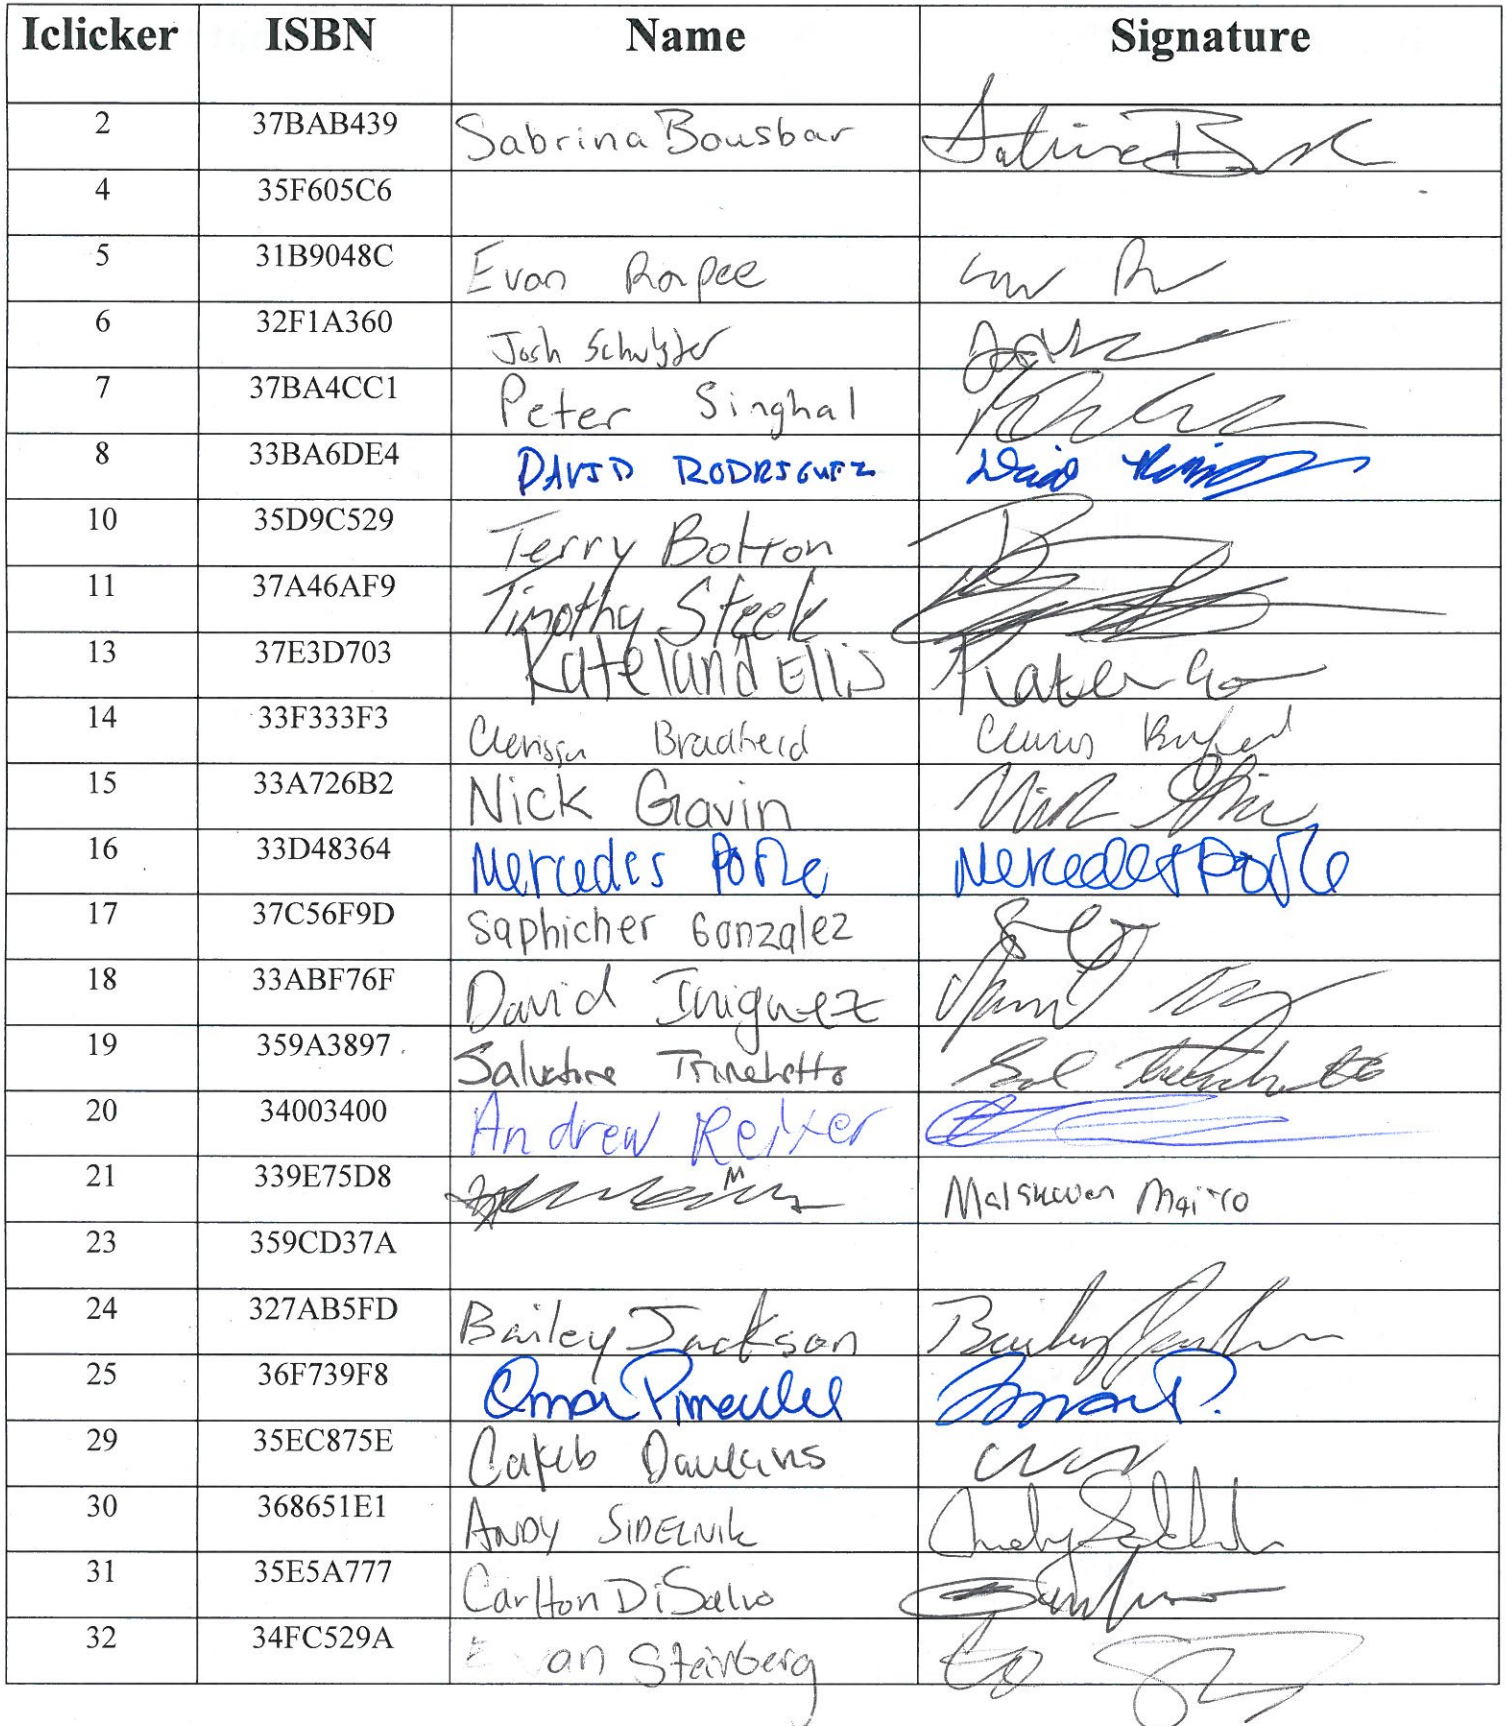 Iclicker ISBN Name Signature
2 37BAB439 Sabrina Bousbar
4 35F605C6
5 31B9048C Evan Rapee
6 32F1A360 Josh
7 37BA4CC1 Peter Singhal
8 33BA6DE4 DAVID RODRIGUEZ David
10 35D9C529 Terry Bolton
11 37A46AF9 Timothy Steele
13 37E3D703 Katelund Ellis
14 33F333F3 Bradfield
15 33A726B2 Nick Gavin Nick
16 33D48364 Mercedes Mercedes
17 37C56F9D Saphicher Gonzalez
18 33ABF76F David Iniguez
19 359A3897 Salvatore Sal
20 34003400 Andrew Reiter
21 339E75D8 M
23 359CD37A
24 327AB5FD Bailey Jackson Bailey
25 36F739F8 Omar Pimentel Omar P.
29 35EC875E Dawkins
30 368651E1 ANDY SIDELNIK Andy
31 35E5A777 Carlton DiSalvo
32 34FC529A Steinberg